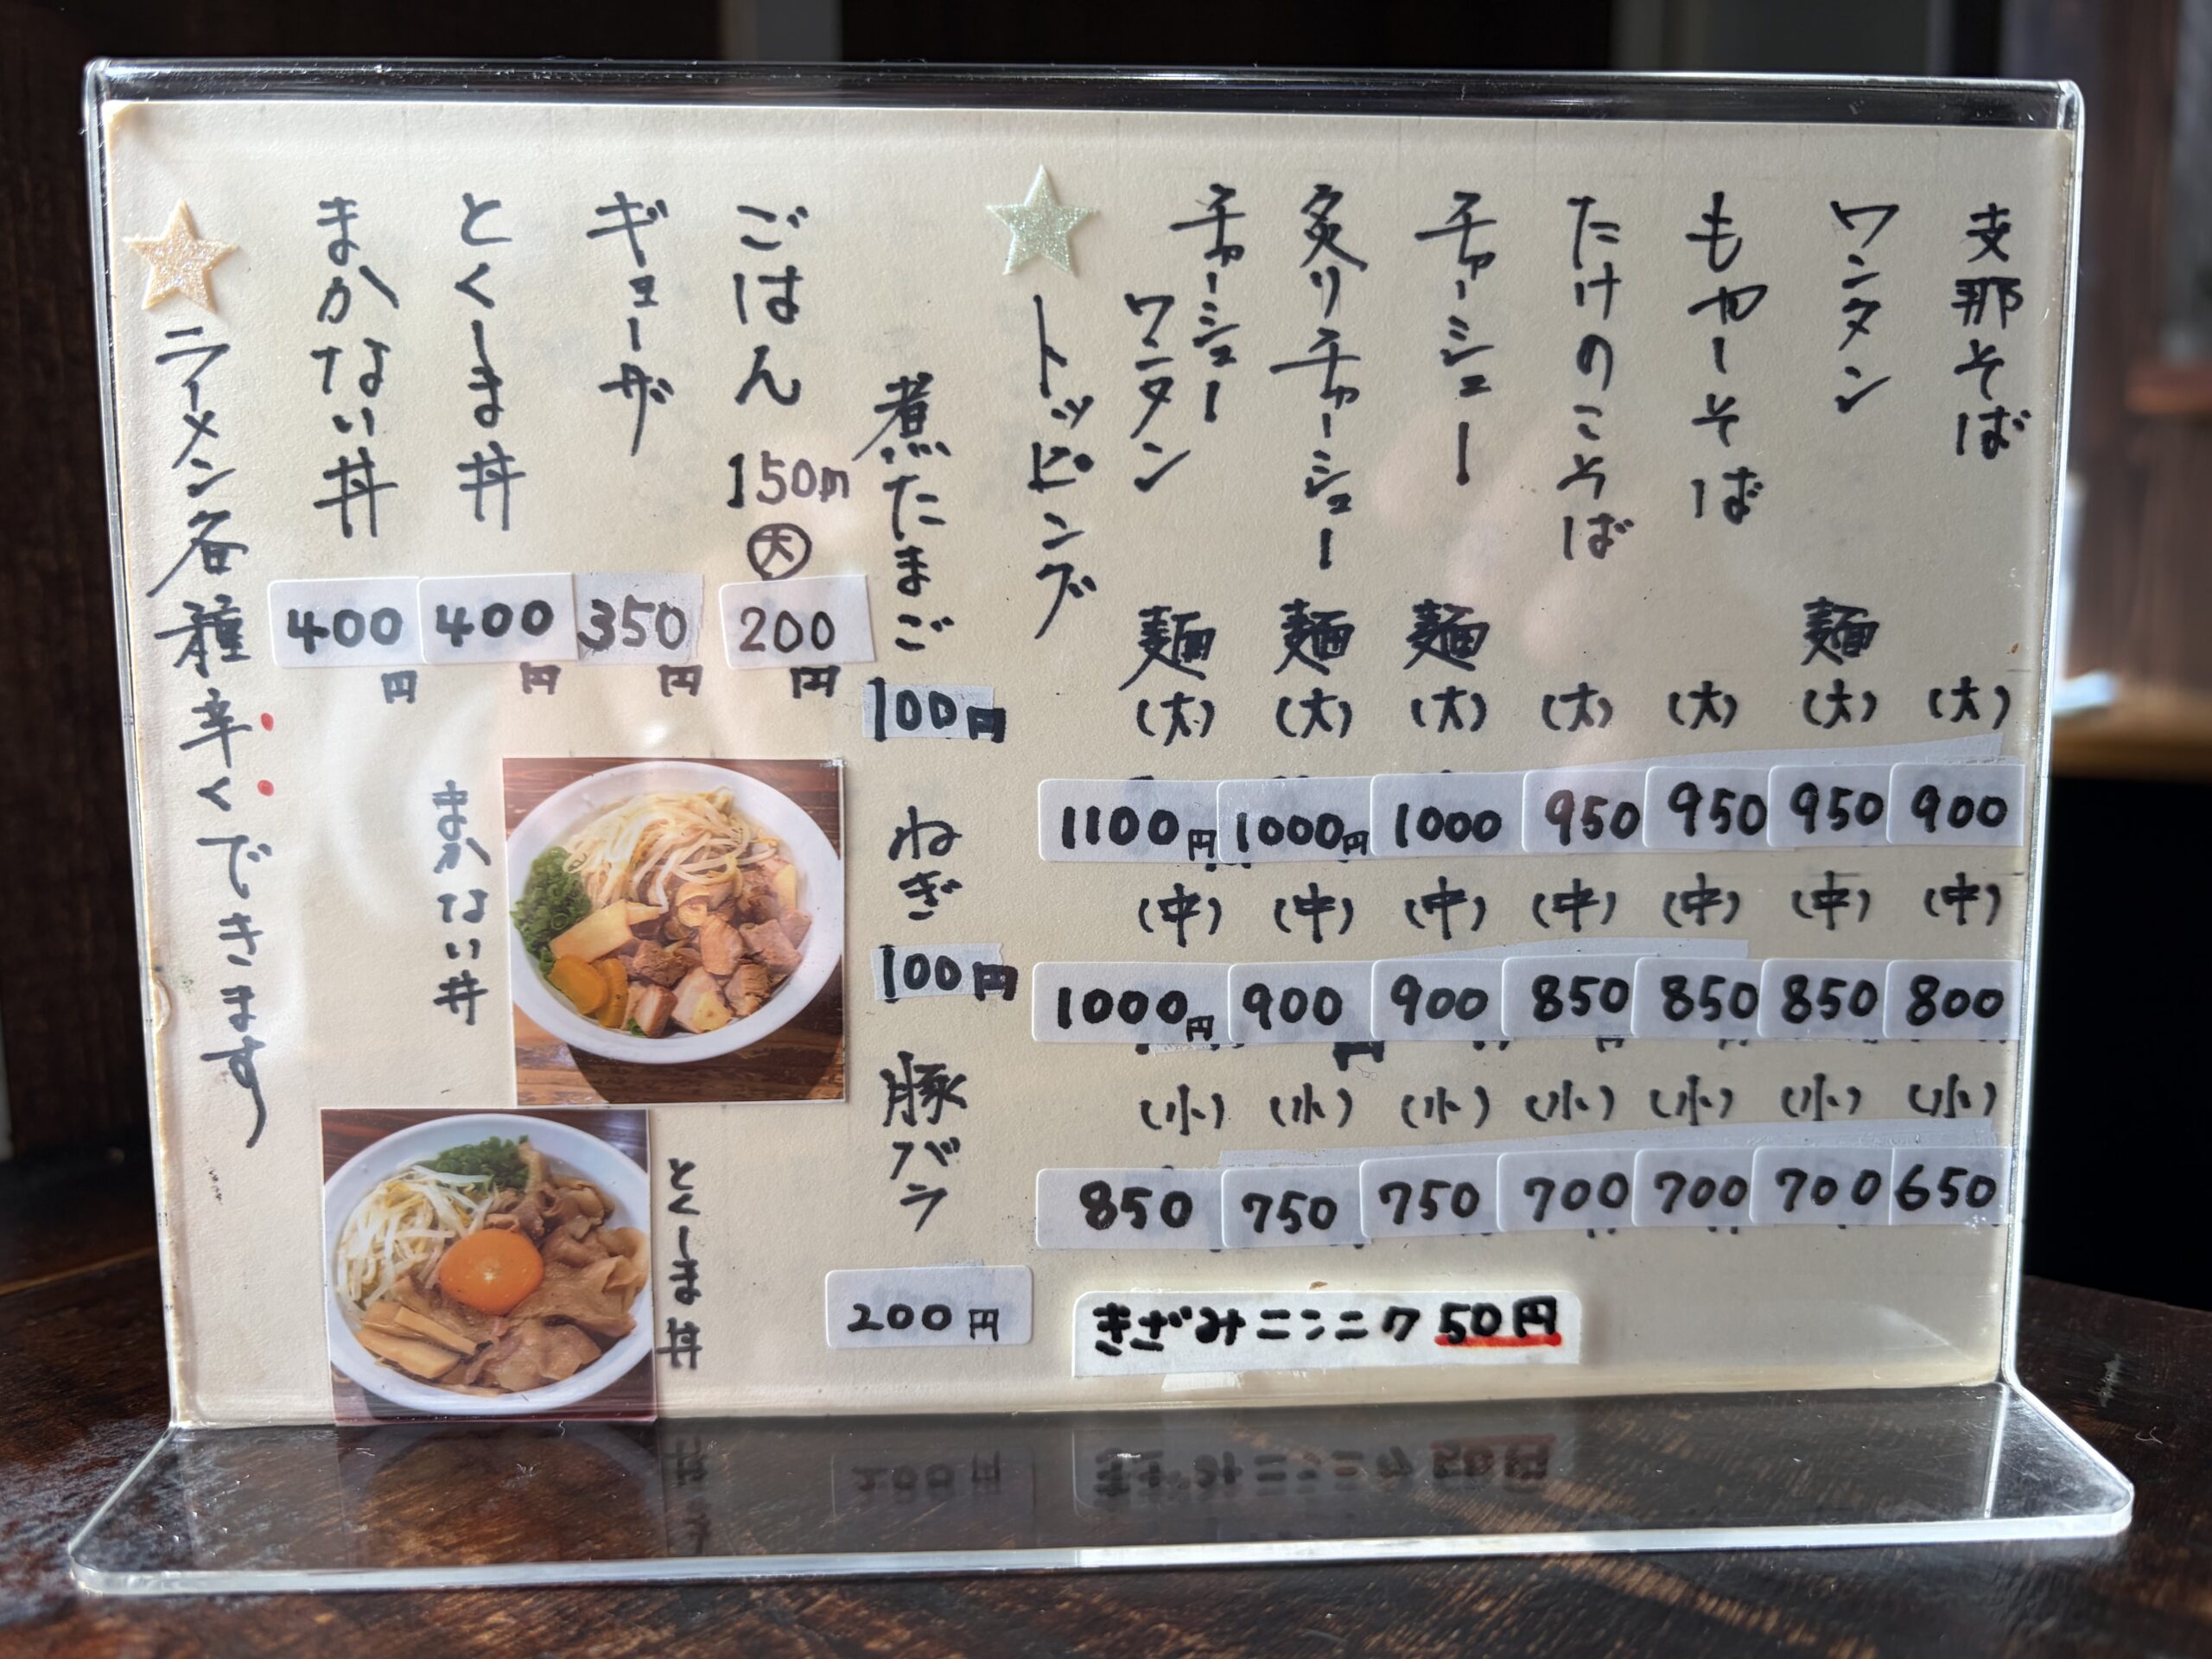 支那そば (大) 900 (中) 800 (小) 650
ワンタン麺 (大) 950 (中) 850 (小) 700
もやーそば (大) 950 (中) 850 (小) 700
たけのこそば (大) 950 (中) 850 (小) 700
チャーシュー麺 (大) 1000 (中) 900 (小) 750
炙りチャーシュー麺 (大) 1000円 (中) 900 (小) 750
チャーシュー
ワンタン麺 (大) 1100円 (中) 1000円 (小) 850
きざみニンニク 50円
トッピング
煮たまご 100円 ねぎ 100円 豚バラ 200円
ごはん 150円 大 200円
ギョーザ 350円
とくしま丼 400円
まかない丼 400円
まかない丼
とくしま丼
ラーメン各種辛くできます